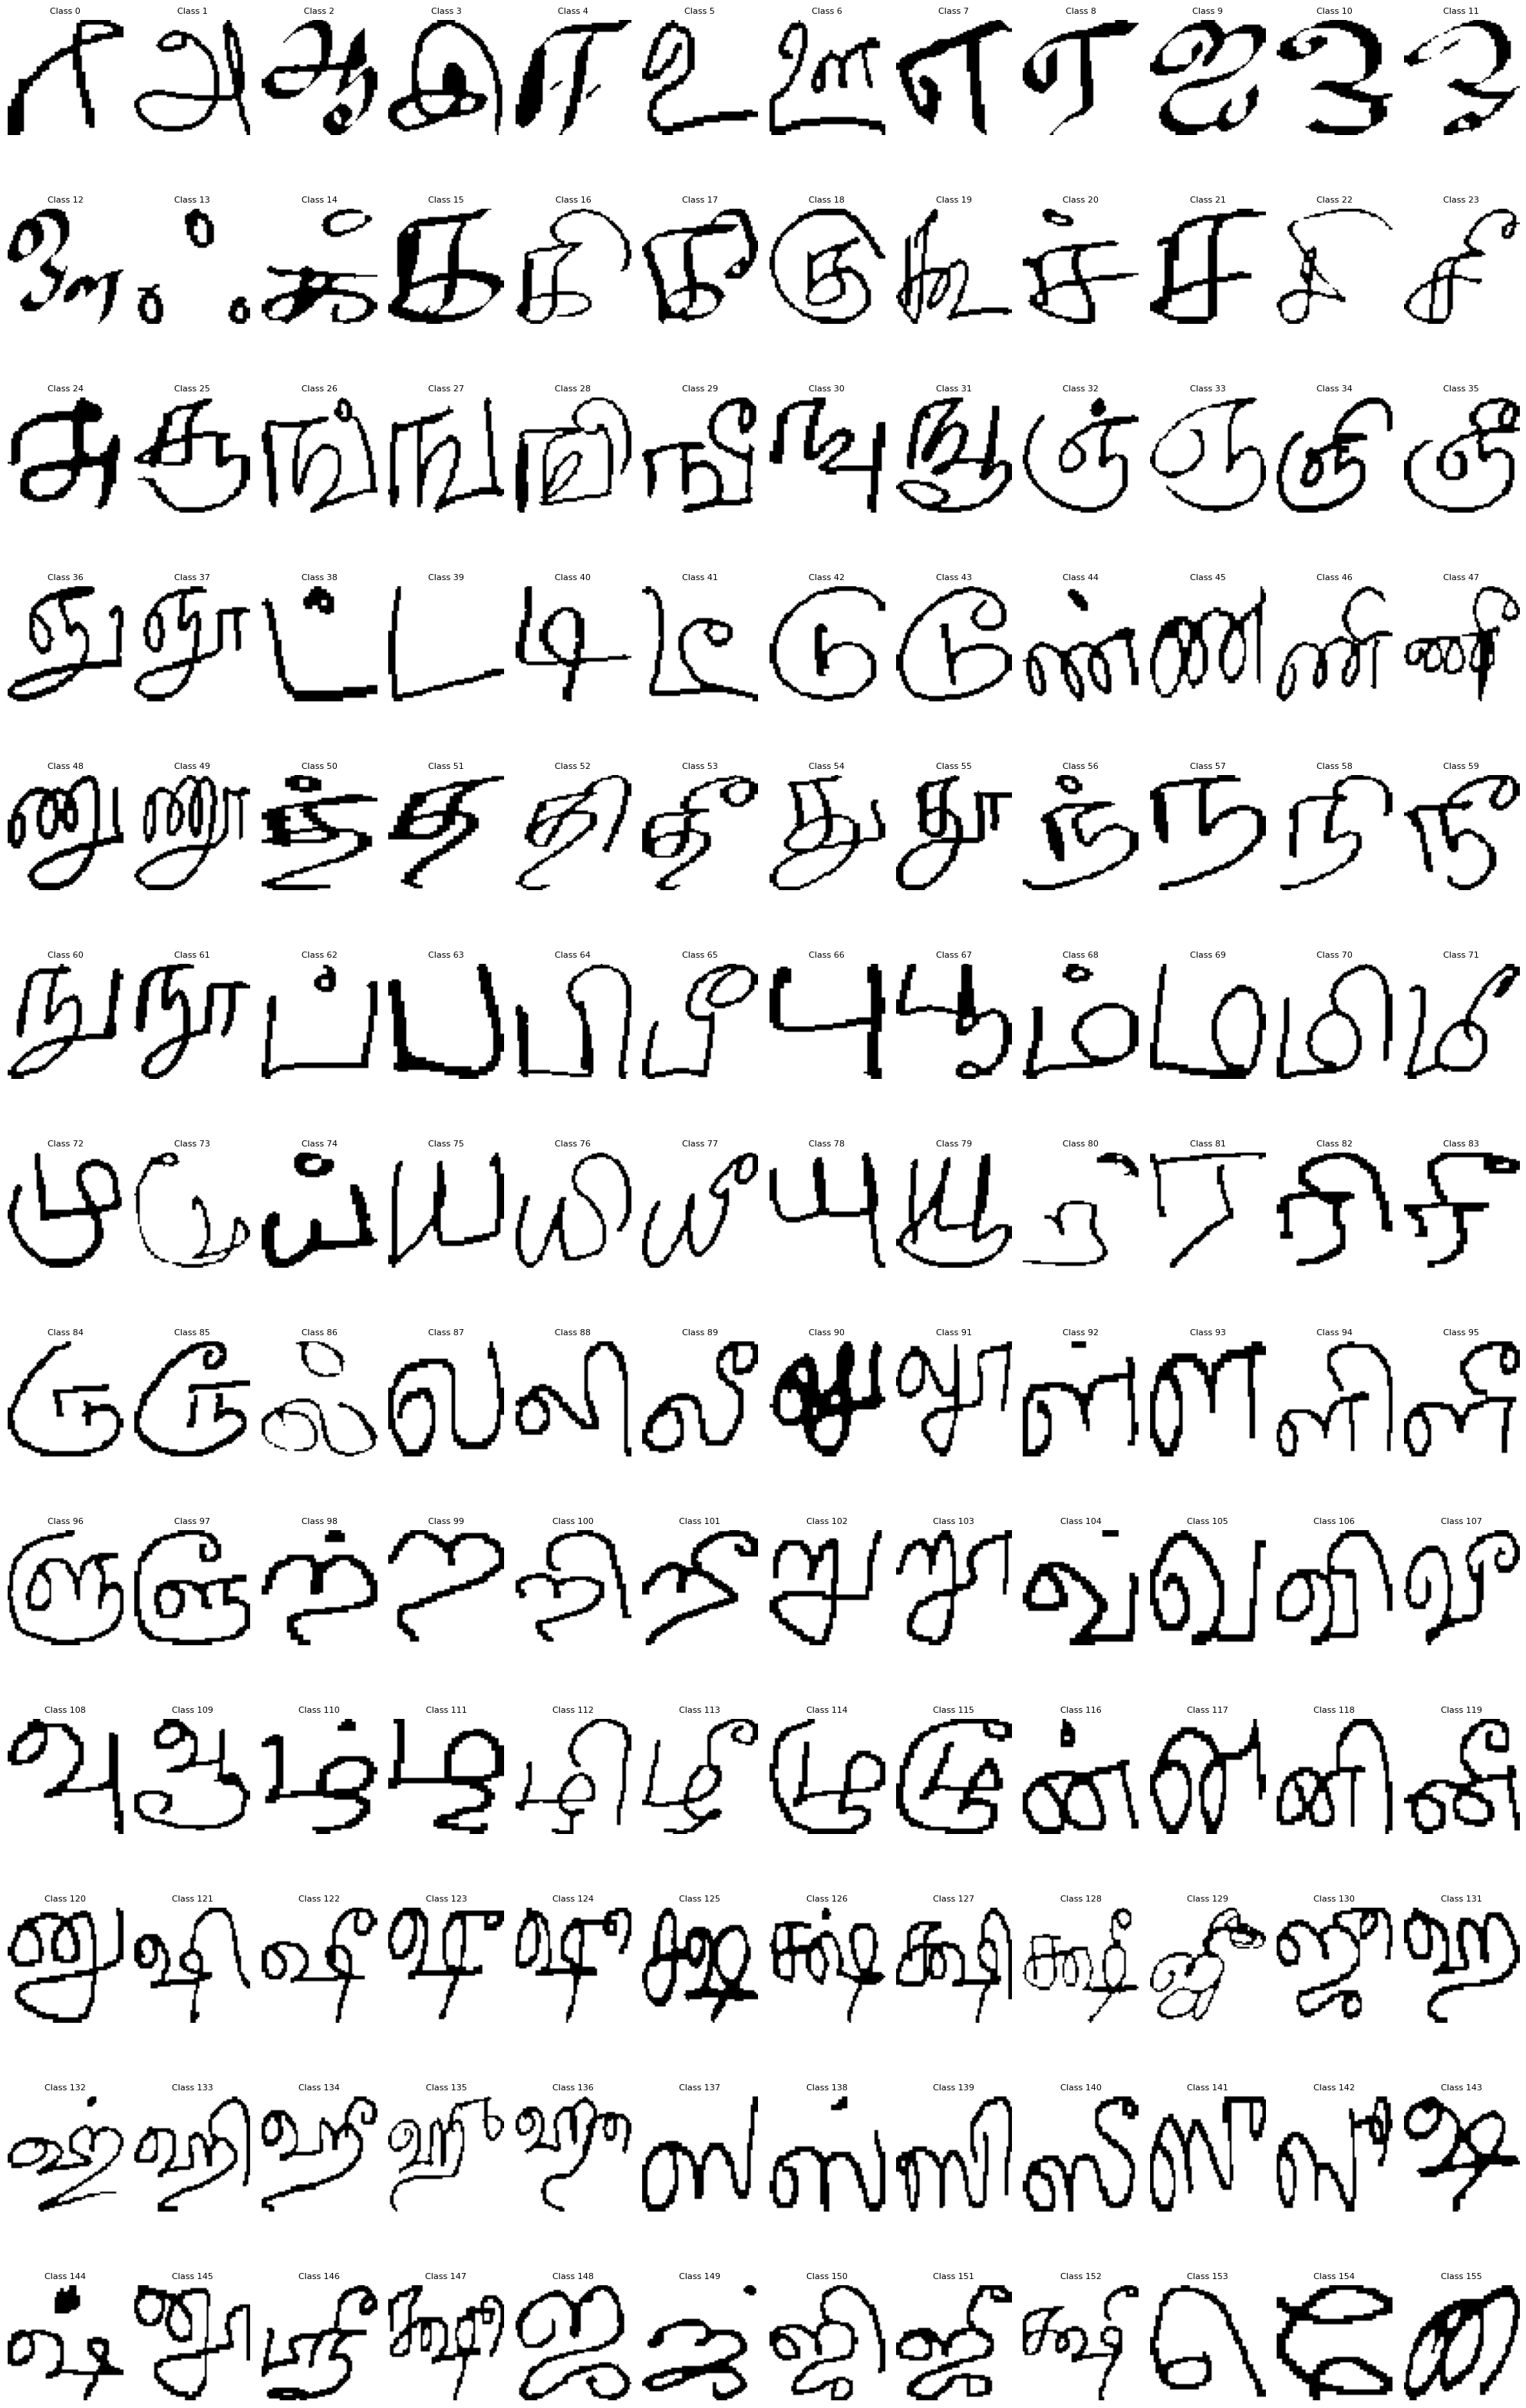 Class 0 Class 1 Class 2 Class 3 Class 4 Class 5 Class 6 Class 7 Class 8 Class 9 Class 10 Class 11
ா அ ஆ இ ஈ உ ஊ எ ஏ ஐ ஒ ஓ
Class 12 Class 13 Class 14 Class 15 Class 16 Class 17 Class 18 Class 19 Class 20 Class 21 Class 22 Class 23
ஔ ஃ க் க கி கீ கு கூ ச் ச சி சீ
Class 24 Class 25 Class 26 Class 27 Class 28 Class 29 Class 30 Class 31 Class 32 Class 33 Class 34 Class 35
சு சூ ங் ங ஙி ஙீ ஙு ஙூ ஞ் ஞ ஞி ஞீ
Class 36 Class 37 Class 38 Class 39 Class 40 Class 41 Class 42 Class 43 Class 44 Class 45 Class 46 Class 47
ஞு ஞூ ட் ட டி டீ டு டூ ண் ண ணி ணீ
Class 48 Class 49 Class 50 Class 51 Class 52 Class 53 Class 54 Class 55 Class 56 Class 57 Class 58 Class 59
ணு ணூ த் த தி தீ து தூ ந் ந நி நீ
Class 60 Class 61 Class 62 Class 63 Class 64 Class 65 Class 66 Class 67 Class 68 Class 69 Class 70 Class 71
நு நூ ப் ப பி பீ பு பூ ம் ம மி மீ
Class 72 Class 73 Class 74 Class 75 Class 76 Class 77 Class 78 Class 79 Class 80 Class 81 Class 82 Class 83
மு மூ ய் ய யி யீ யு யூ ர் ர ரி ரீ
Class 84 Class 85 Class 86 Class 87 Class 88 Class 89 Class 90 Class 91 Class 92 Class 93 Class 94 Class 95
ரு ரூ ல் ல லி லீ லு லூ ள் ள ளி ளீ
Class 96 Class 97 Class 98 Class 99 Class 100 Class 101 Class 102 Class 103 Class 104 Class 105 Class 106 Class 107
ளு ளூ ற் ற றி றீ று றூ வ் வ வி வீ
Class 108 Class 109 Class 110 Class 111 Class 112 Class 113 Class 114 Class 115 Class 116 Class 117 Class 118 Class 119
வு வூ ழ் ழ ழி ழீ ழு ழூ ன் ன னி னீ
Class 120 Class 121 Class 122 Class 123 Class 124 Class 125 Class 126 Class 127 Class 128 Class 129 Class 130 Class 131
னு ஷி ஷீ ஷு ஷூ க்ஷ க்ஷ் க்ஷி க்ஷீ ஜு ஜூ ஹ
Class 132 Class 133 Class 134 Class 135 Class 136 Class 137 Class 138 Class 139 Class 140 Class 141 Class 142 Class 143
ஹ் ஹி ஹீ ஹு ஹூ ஸ ஸ் ஸி ஸீ ஸு ஸூ ஷ
Class 144 Class 145 Class 146 Class 147 Class 148 Class 149 Class 150 Class 151 Class 152 Class 153 Class 154 Class 155
ஷ் னூ ஸ்ரீ க்ஷூ ஜ ஜ் ஜி ஜீ க்ஷு ெ ே ை